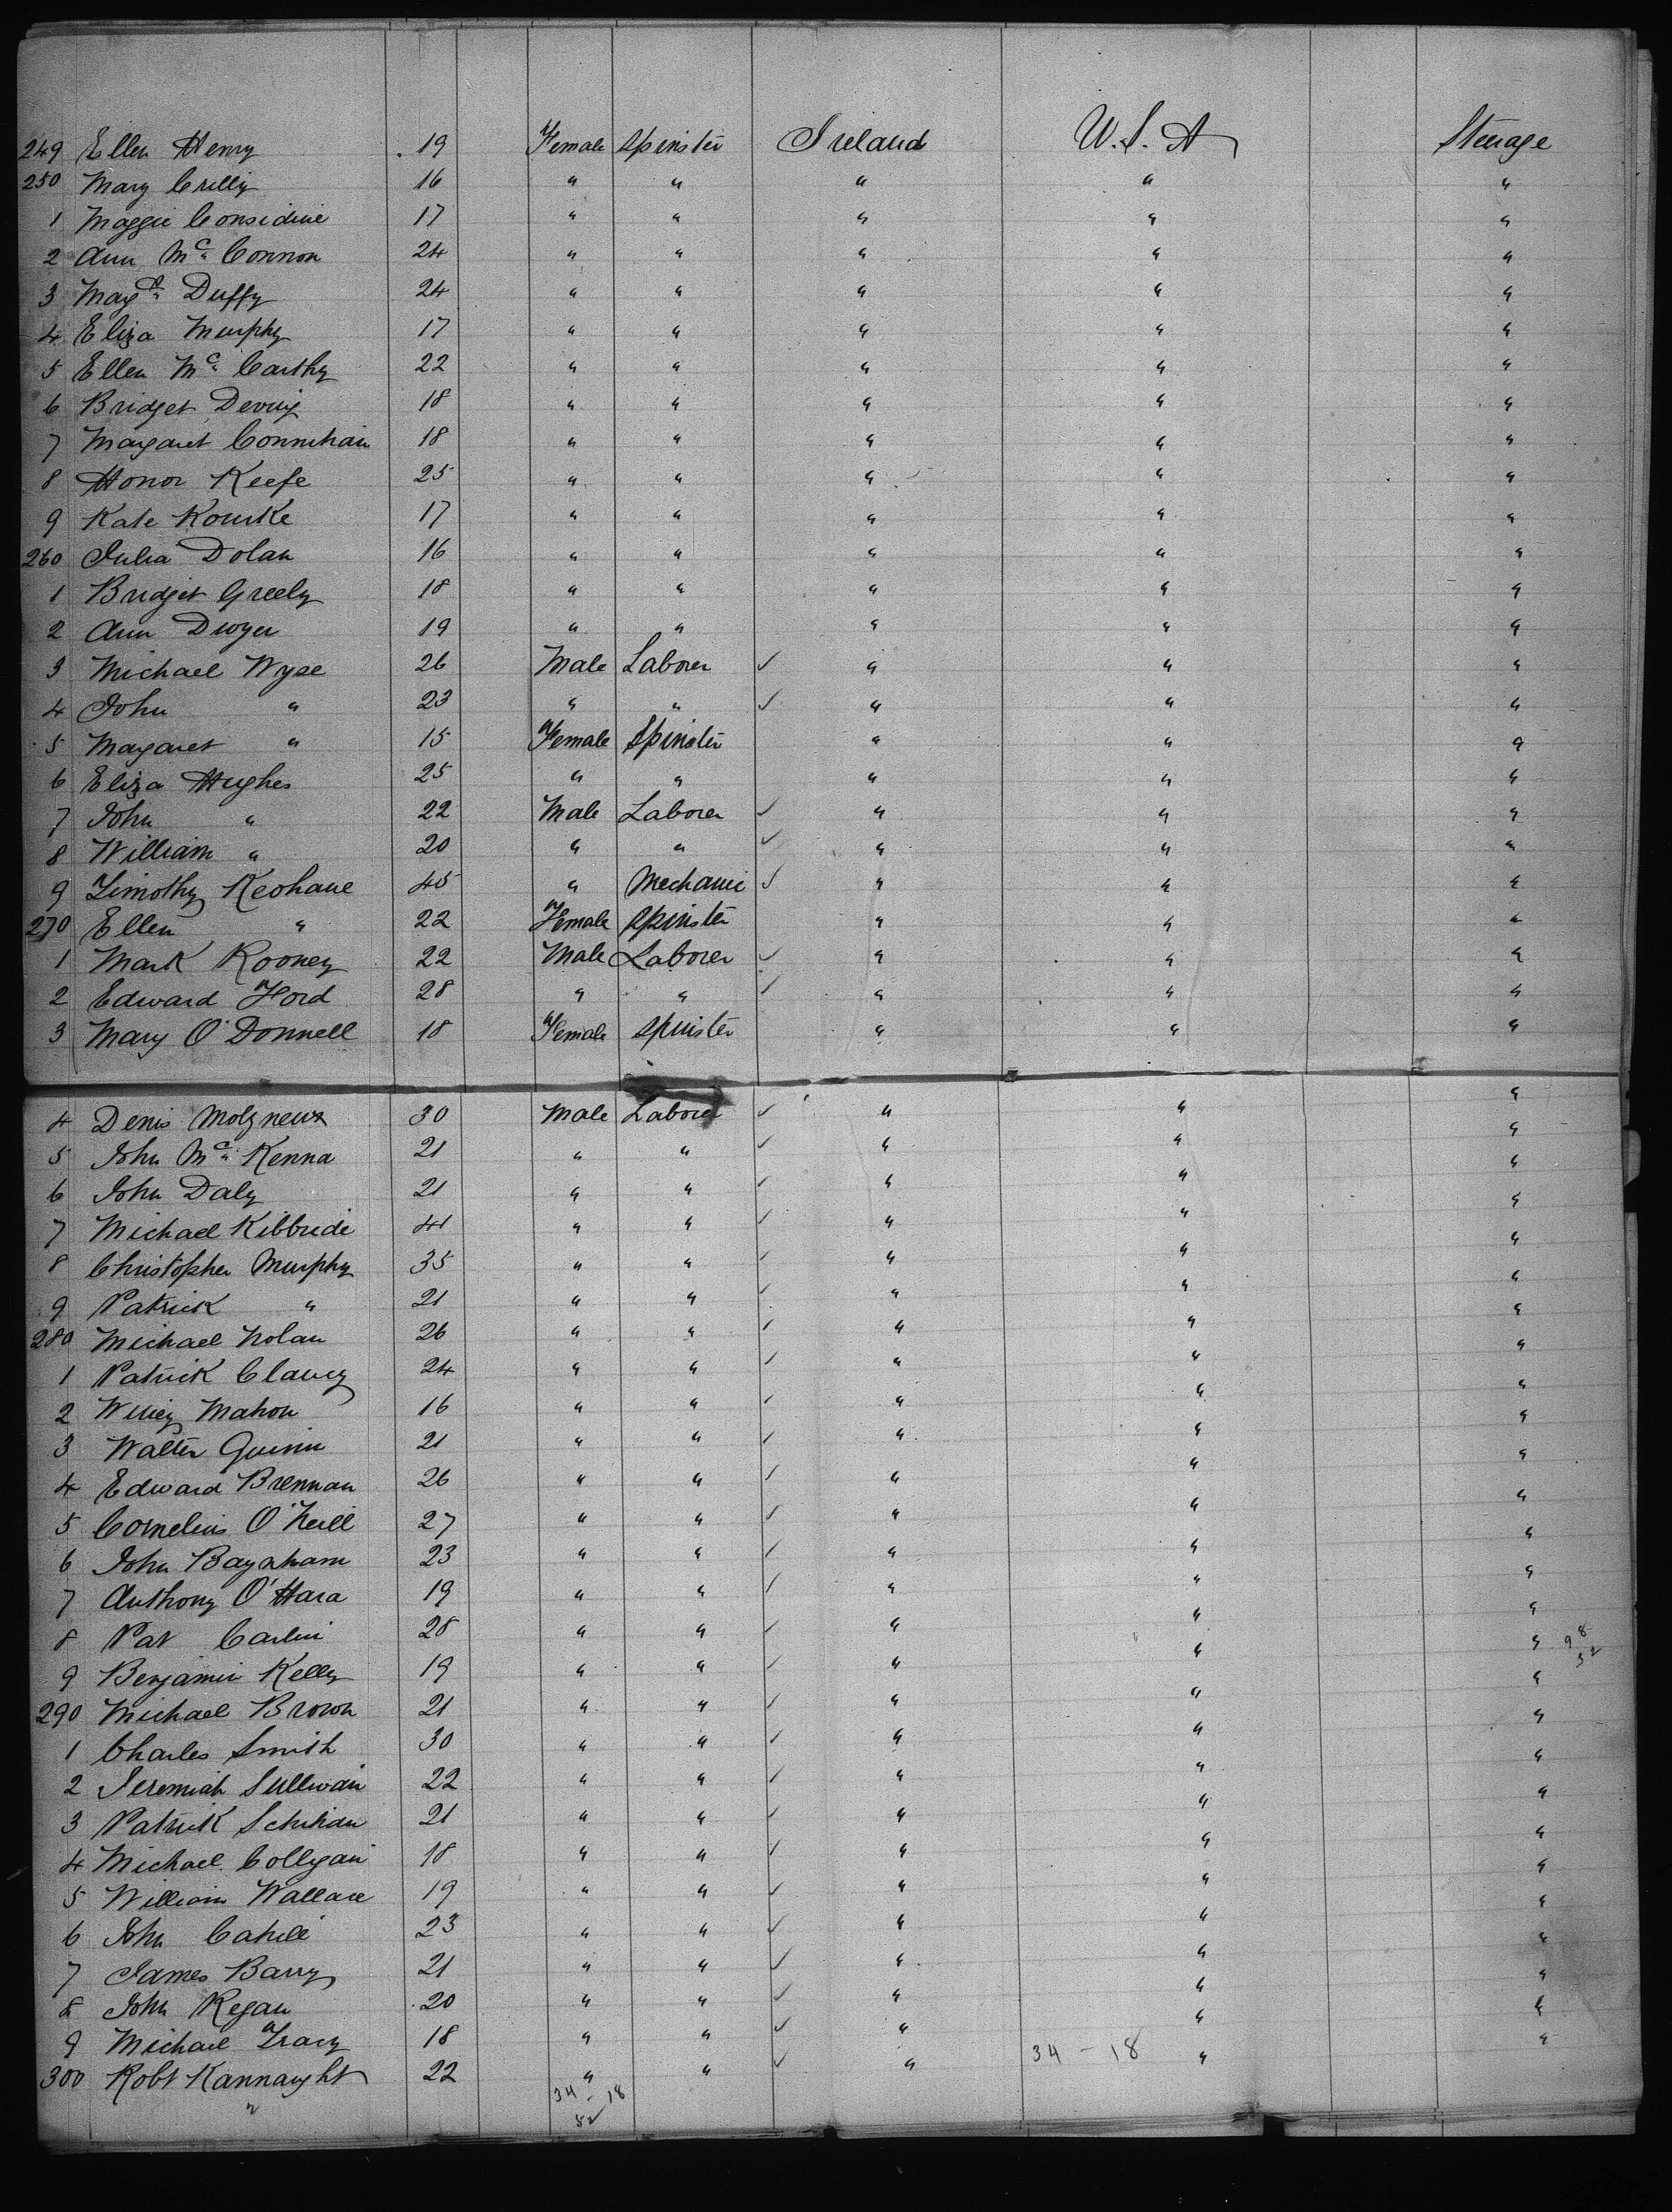 249 Ellen Henry 19 Female Spinster Ireland U.S.A Steerage
250 Mary Crilly 16 " " " " "
1 Maggie Considine 17 " " " " "
2 Ann Mc Connon 24 " " " " "
3 Margt Duffy 24 " " " " "
4 Eliza Murphy 17 " " " " "
5 Ellen Mc Carthy 22 " " " " "
6 Bridget 18 " " " " "
7 Margaret 18 " " " " "
8 Honor Keefe 25 " " " " "
9 Kate Rourke 17 " " " " "
260 Julia Dolan 16 " " " " "
1 Bridget Greely 18 " " " " "
2 Ann Dwyer 19 " " " " "
3 Michael Wyse 26 Male Laborer ✓ " " "
4 John " 23 " " ✓ " " "
5 Margaret " 15 Female Spinster " " "
6 Eliza Hughes 25 " " " " "
7 John " 22 Male Laborer ✓ " " "
8 William " 20 " " ✓ " " "
9 Timothy Keohane 45 " Mechanic ✓ " " "
270 Ellen " 22 Female Spinster " " "
1 Mark Rooney 22 Male Laborer ✓ " " "
2 Edward Ford 28 " " ✓ " " "
3 Mary O'Donnell 18 Female Spinster " " "
4 Denis Molyneux 30 Male Laborer ✓ " " "
5 John Mc Kenna 21 " " ✓ " " "
6 John Daly 21 " " ✓ " " "
7 Michael Kilbride 41 " " ✓ " " "
8 Christopher Murphy 35 " " ✓ " " "
9 Patrick " 21 " " ✓ " " "
280 Michael Nolan 26 " " ✓ " " "
1 Patrick Clancy 24 " " ✓ " " "
2 Mahon 16 " " ✓ " " "
3 Walter Quinn 21 " " ✓ " " "
4 Edward Brennan 26 " " ✓ " " "
5 Cornelius O'Neill 27 " " ✓ " " "
6 John 23 " " ✓ " " "
7 Anthony O'Hara 19 " " ✓ " " "
8 Pat Carlin 28 " " ✓ " " "
9 Benjamin Kelly 19 " " ✓ " " " 98
52
290 Michael Brown 21 " " ✓ " " "
1 Charles Smith 30 " " ✓ " " "
2 Jeremiah Sullivan 22 " " ✓ " " "
3 Patrick 21 " " ✓ " " "
4 Michael Colligan 18 " " ✓ " " "
5 William Wallace 19 " " ✓ " " "
6 John Cahill 23 " " ✓ " " "
7 James Barry 21 " " ✓ " " "
8 John Regan 20 " " ✓ " " "
9 Michael Tracy 18 " " ✓ " " "
300 Robt Kannaught 22 " " ✓ " 34 - 18 " "
34 - 18
52